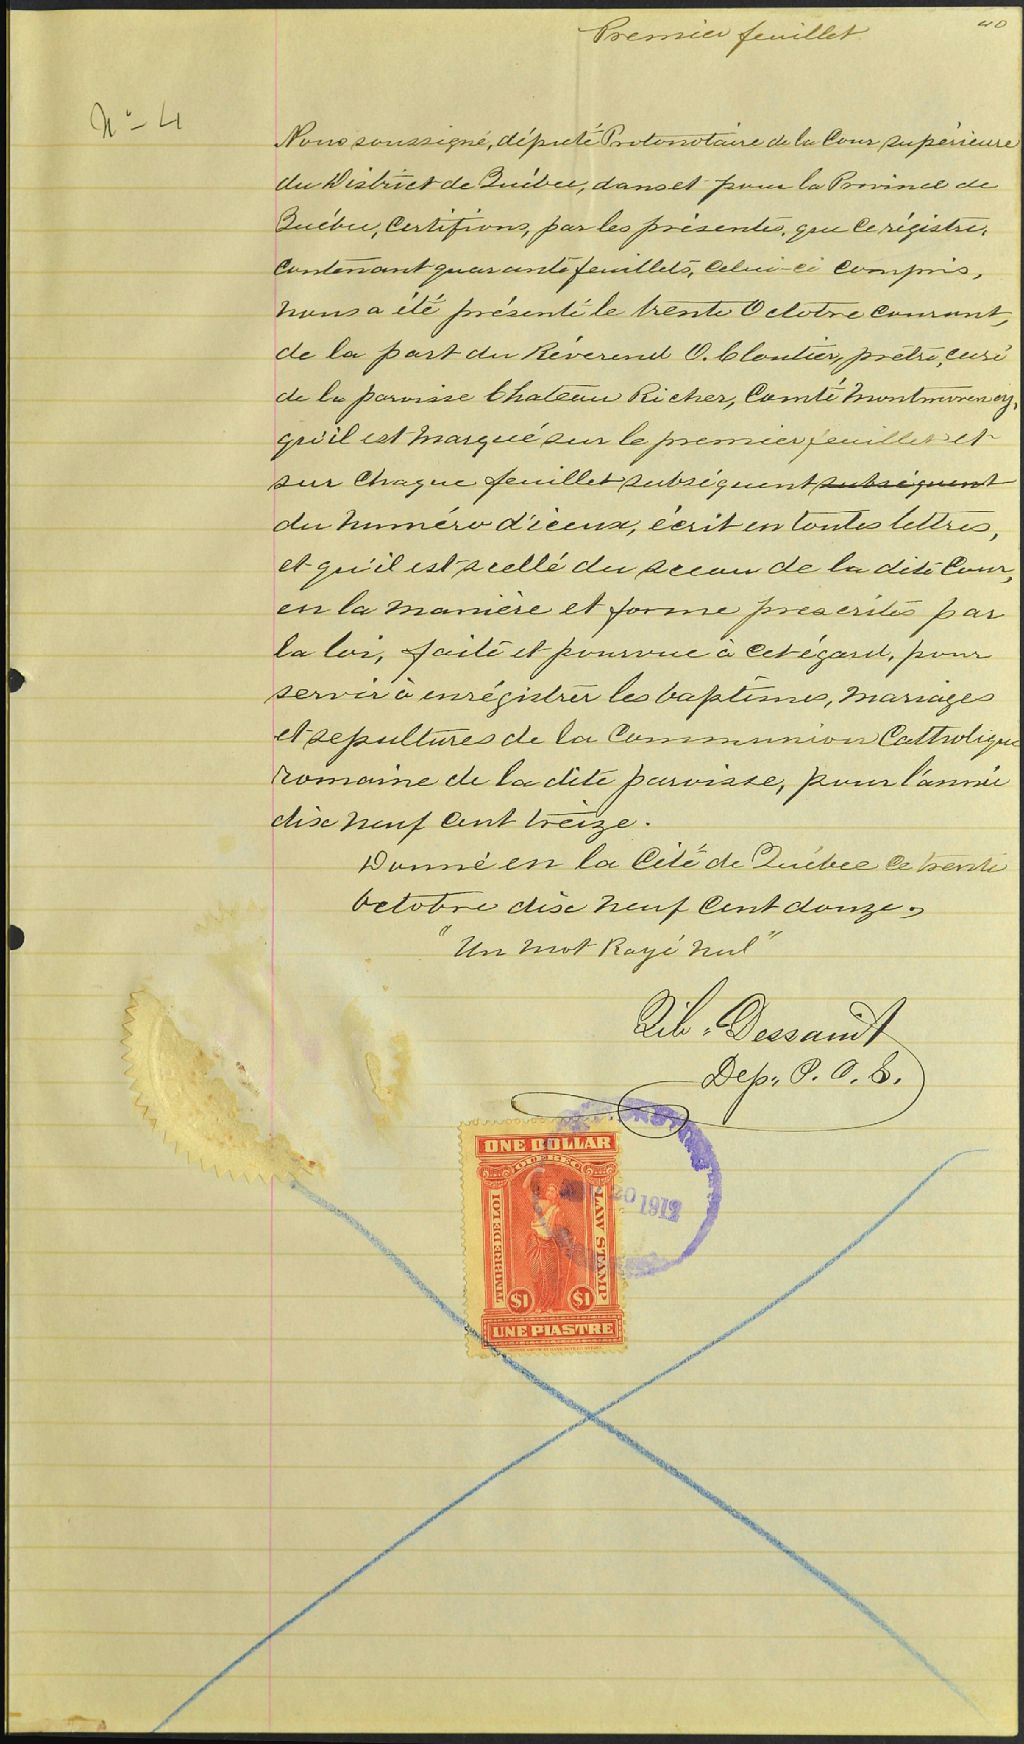 Premier feuillet
40
No - 4
Nous soussigné, député Protonotaire de la Cour supérieure
du District de Québec, dans et pour la Province de
Québec, Certifions, par les présentes, que Ce régistre,
Contenant quarante feuillets, Celui-ci Compris,
nous a été présenté le trente Octobre Courant,
de la part du Révérend O. Cloutier, prêtre, curé
de la paroisse Chateau Richer, Comté Montmorency,
qu'il est marqué sur le premier feuillet et
sur Chaque feuillet subséquent subséquent
du numéro d'iceux, écrit en toutes lettres,
et qu'il est scellé du sceau de la dite Cour,
en la manière et forme prescrites par
la loi, faite et pourvue à cet égard, pour
servir à enrégistrer les baptêmes, mariages
et sepultures de la Communion Catholique
romaine de la dite paroisse, pour l'année
dix neuf cent treize.
Donné en la Cité de Québec ce trente
Octobre dix neuf cent douze.
"Un mot Rayé nul"
Zib. Dessaint
Dep. P. C. S.
ONE DOLLAR
QUEBEC
TIMBRE DE LOI
LAW STAMP
20 1912
$1 $1
UNE PIASTRE